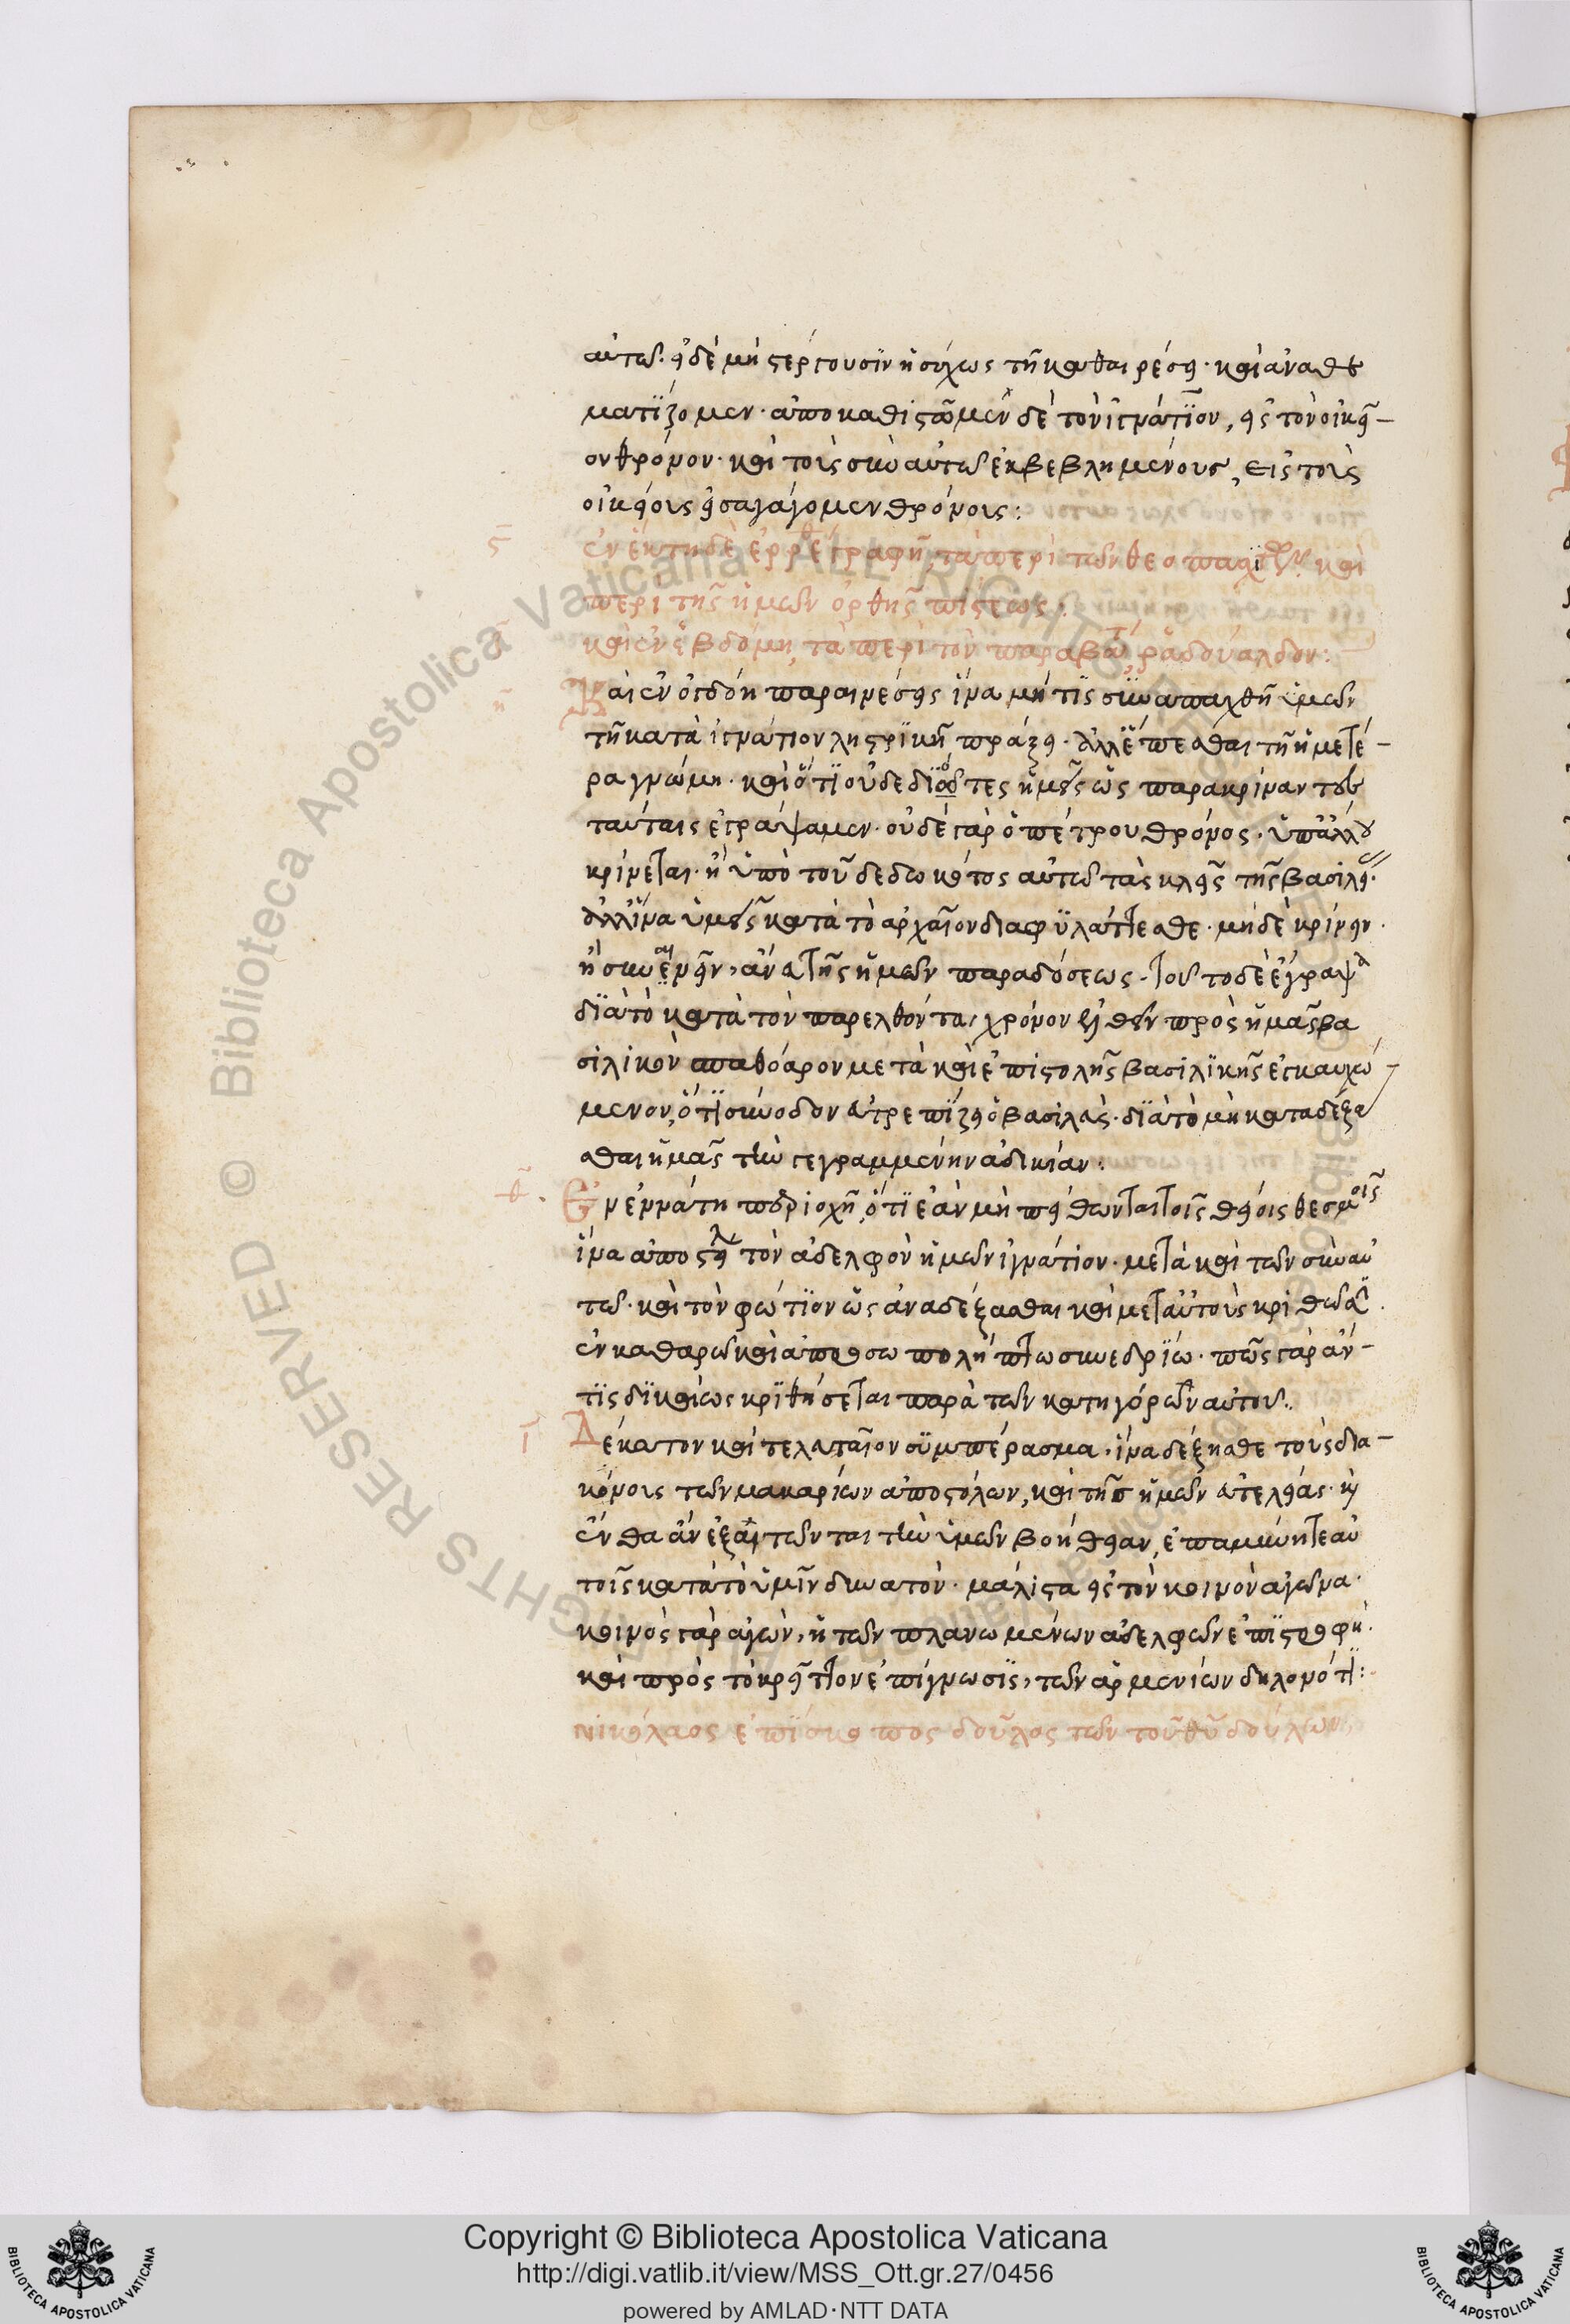 αὐτῶ. εἰ δὲ μὴ στέργουσιν ἡσύχως τῆ καθαιρέσει· καὶ ἀναθε
ματίζομεν· ἀποκαθιστῶμεν δὲ τὸν ἰγνάτιον, εἰς τὸν οἰκεῖ-
ον θρόνον· καὶ τοὺς σὺν αὐτῶ ἐκβεβλημένους, εἰς τοὺς
οἰκείους εἰσαγάγομεν θρόνους:
ς ἐν ἕκτη δὲ ἐρρέθη γραφῆ, τὰ περὶ τῶν θεοπασχιτῶν· καὶ
περὶ τῆς ἡμῶν ὀρθῆς πίστεως.
ζ καὶ ἐν ἑβδόμη, τὰ περὶ τὸν παραβάτην ῥαδούαλδον:
η Καὶ ἐν ὀγδόη παραινέσεις ἵνα μή τις συναπαχθῆ ὑμῶν
τῆ κατὰ ἰγνάτιον ληστρικῆ πράξει· ἀλλ' ἕπεσθαι τῆ ἡμετέ-
ρα γνώμη· καὶ ὅτι οὐ δεδιότες ἡμεῖς ὡς παρακρίναντες
ταύταις ἐγράψαμεν· οὐδὲ γὰρ ὁ πέτρου θρόνος· ὑπ' ἄλλου
κρίνεται· ἢ ὑπὸ τοῦ δεδωκότος αὐτῶ τὰς κλεῖς τῆς βασιλείας·
ἀλλ' ἵνα ὑμεῖς κατὰ τὸ ἀρχαῖον διαφυλάττεσθε· μηδὲ κρίνειν·
ἢ συναινεῖν, ἄνευ τῆς ἡμῶν παραδόσεως· τοῦτο δὲ ἔγραψα
διὰ τὸ κατὰ τὸν παρελθόντα χρόνον ἐλθεῖν πρὸς ἡμᾶς βα
σιλικὸν σπαθάριον μετὰ καὶ ἐπιστολῆς βασιλικῆς ἐγκαυχώ-
μενον, ὅτι σύνοδον εὐτρεπίζει ὁ βασιλεὺς· διὰ τὸ μὴ καταδέξα
σθαι ἡμᾶς τὴν γεγραμμένην ἀδικίαν:
θ Ἐν ἐννάτη περιοχῆ, ὅτι ἐὰν μὴ πείθωνται τοῖς θείοις θεσμοῖς
ἵνα ἀποσταλῆ τὸν ἀδελφὸν ἡμῶν ἰγνάτιον· μετὰ καὶ τῶν σὺν αὐ
τῶ· καὶ τὸν φώτιον ὡς ἀναδέξασθαι καὶ μετ' αὐτοὺς κριθῶσι
ἐν καθαρῶ καὶ ἀπροσωπολήπτω συνεδρίω· πῶς γὰρ ἄν-
τις δικαίως κριθήσεται παρὰ τῶν κατηγόρων αὐτοῦ..
ι Δέκατον καὶ τελευταῖον συμπέρασμα, ἵνα δέξησθε τοὺς δια-
κόνους τῶν μακαρίων ἀποστόλων, καὶ τῆς ἡμῶν εὐτελείας· καὶ
ἔνθα ἂν ἐξαιτῶνται τὴν ὑμῶν βοήθειαν, ἐπαμύνητε αὐ
τοῖς κατὰ τὸ ὑμῖν δυνατὸν· μάλιστα εἰς τὸν κοινὸν ἀγῶνα·
κοινὸς γὰρ ἀγὼν, ἡ τῶν πλανωμένων ἀδελφῶν ἐπιστροφὴ·
καὶ πρὸς τὸ κρεῖττον ἐπίγνωσις, τῶν ἀρμενίων δηλονότι:
νικόλαος ἐπίσκοπος δοῦλος τῶν τοῦ θῦ δούλων
Copyright © Biblioteca Apostolica Vaticana
http://digi.vatlib.it/view/MSS_Ott.gr.27/0456
powered by AMLAD·NTT DATA